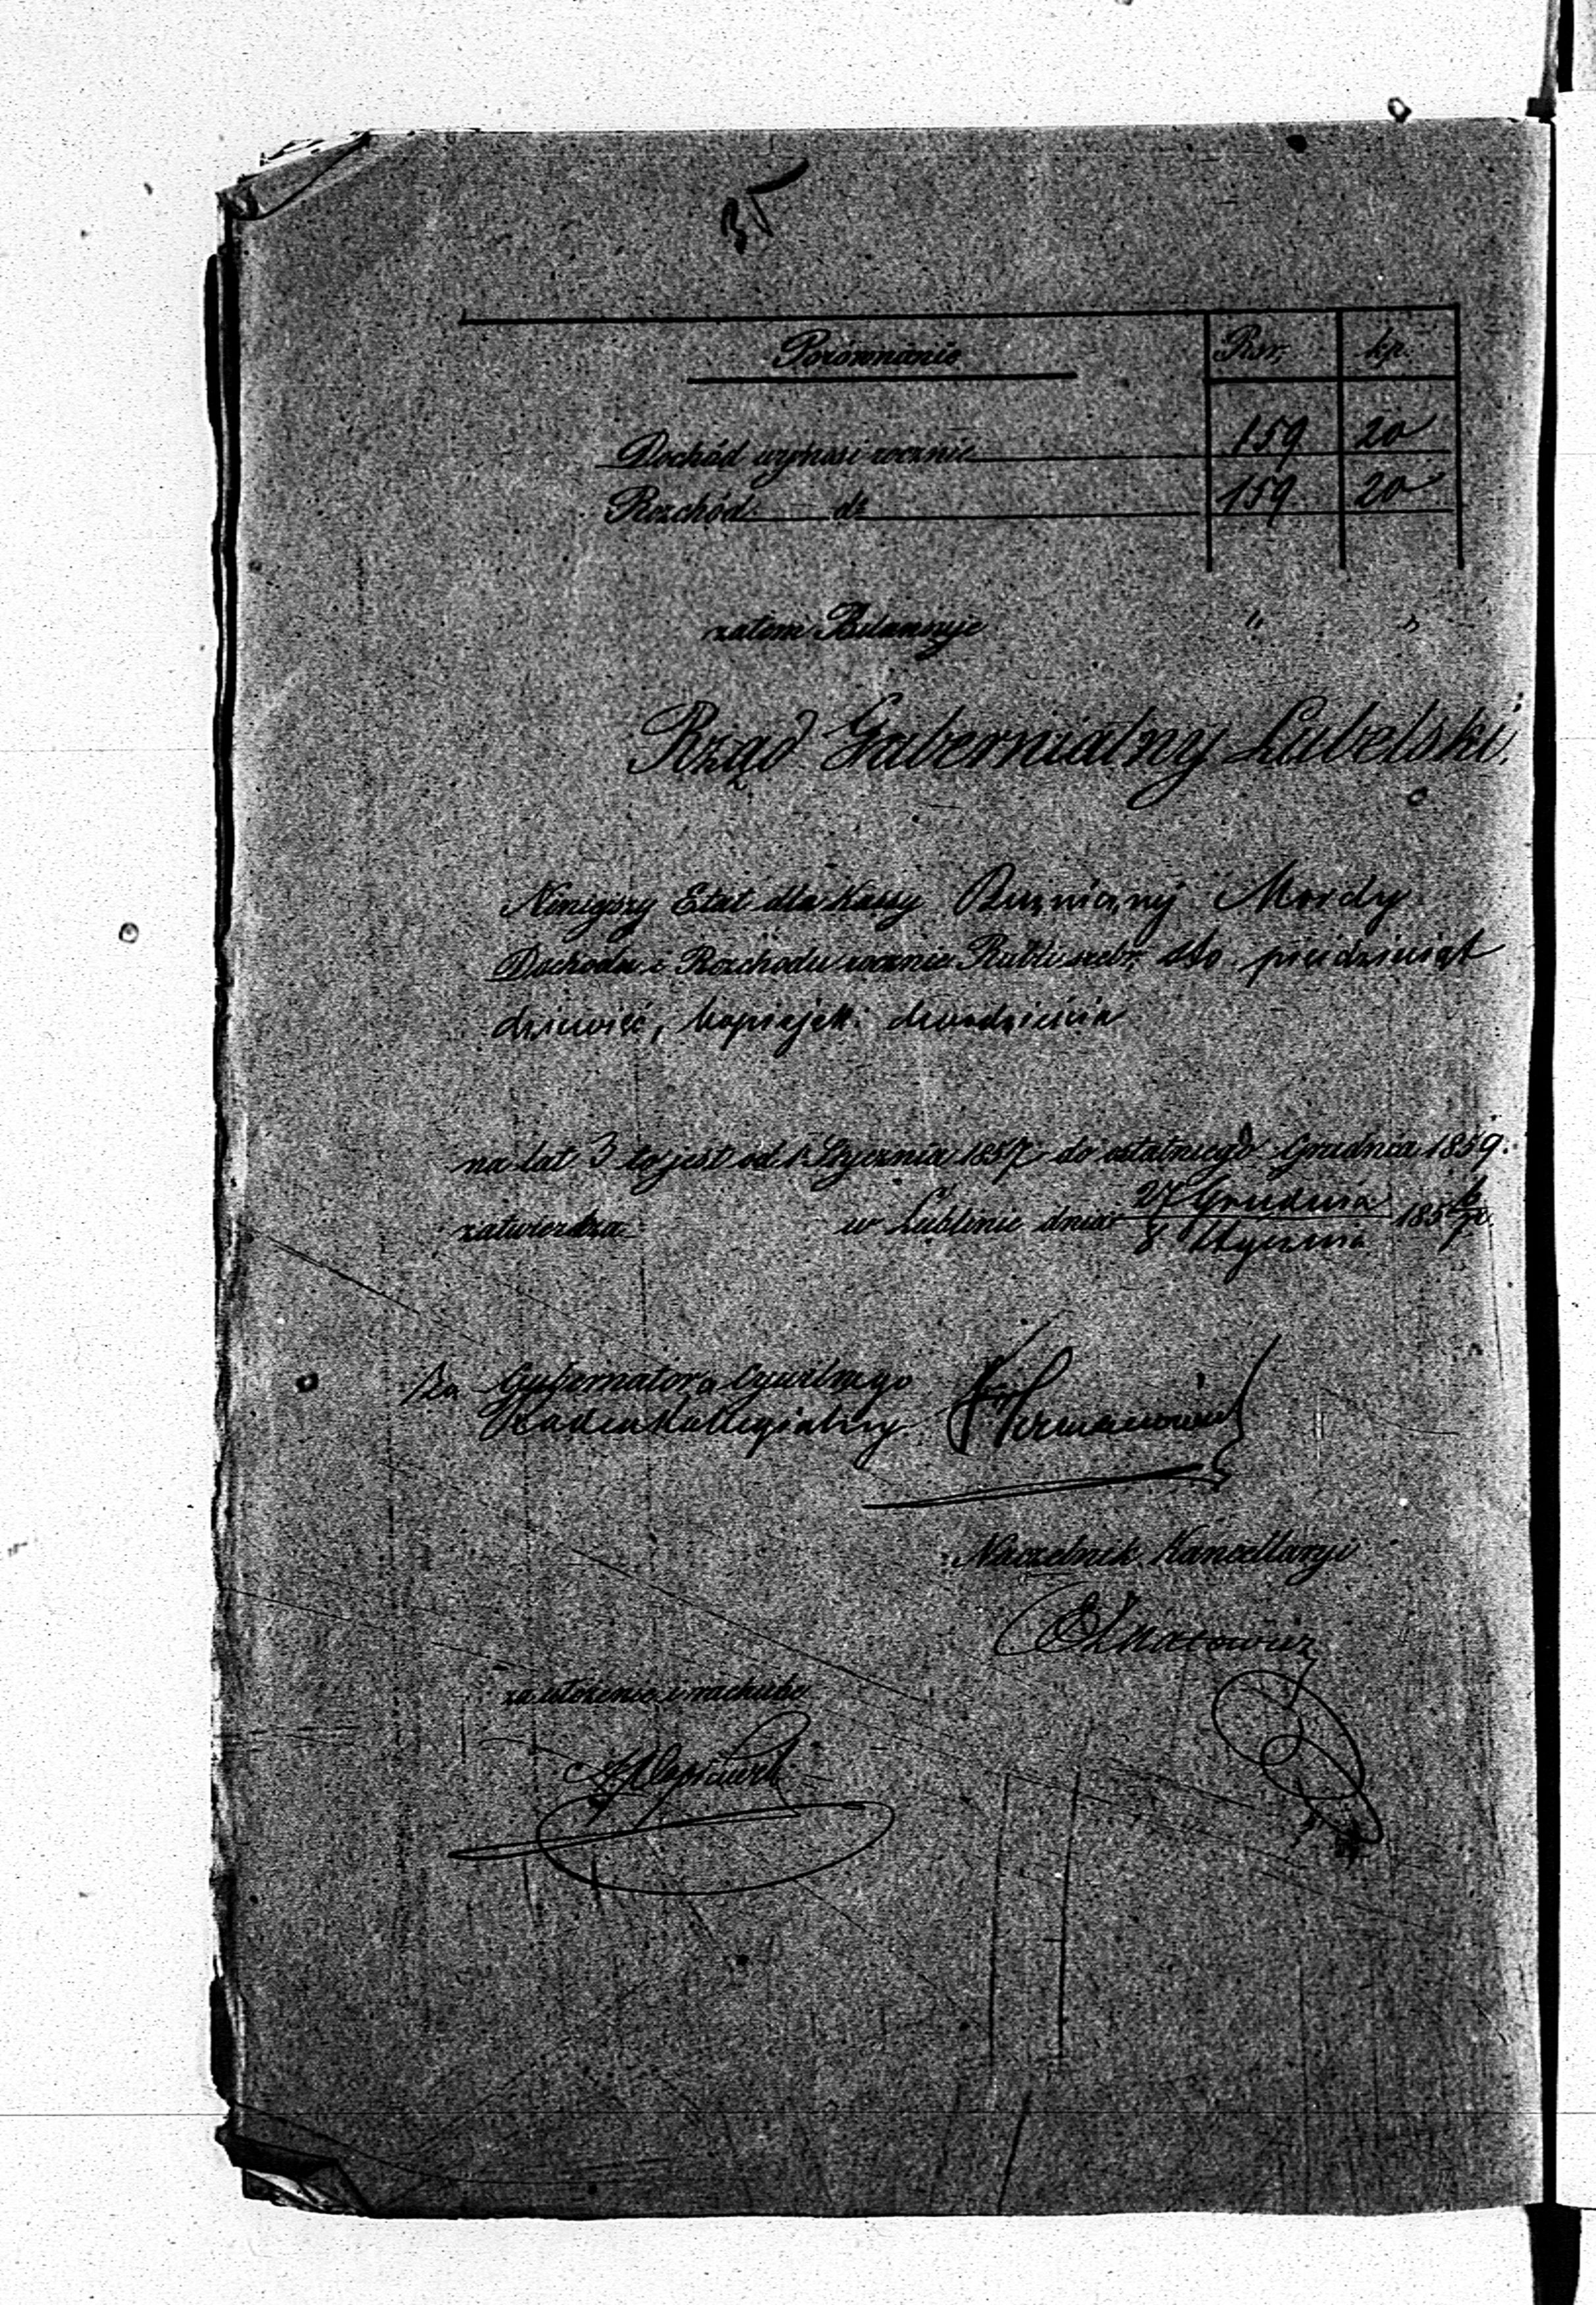 35
Porównanie Rsr. kp.
Dochód wynosi rocznie 159 20
Rozchód dº 159 20
zatem Bilansuje " "
Rząd Gubernialny Lubelski.
Niniejszy Etat dla Kassy Bużniczny Mordy
Dochodu i Rozchodu rocznie Rubli srebr. sto pięćdziesiąt
dziewięć, kopiejek dwadzieścia
na lat 3 to jest od 1 Stycznia 1857 do ostatniego Grudnia 1859.
zatwierdza w Lublinie dnia 27 Grudnia / 8 Stycznia 1856/7.
Za Gubernatora Cywilnego
Radca Kollegialny
Naczelnik Kancellaryi
za ułożenie i rachubę